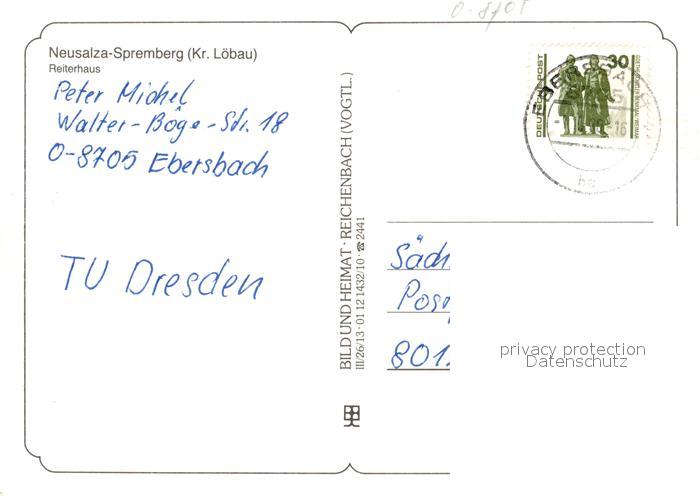 O-8705
Neusalza-Spremberg (Kr. Löbau)
Reiterhaus
Peter Michel
Walter-Böge-Str. 18
O-8705 Ebersbach
TU Dresden
BILD UND HEIMAT · REICHENBACH (VOGTL.)
III/26/13 · 01 12 1432/10 · ☎ 2441
DEUTSCHE POST
30
GOETHE-SCHILLER-DENKMAL WEIMAR
Säch
Pos
801
privacy protection
Datenschutz